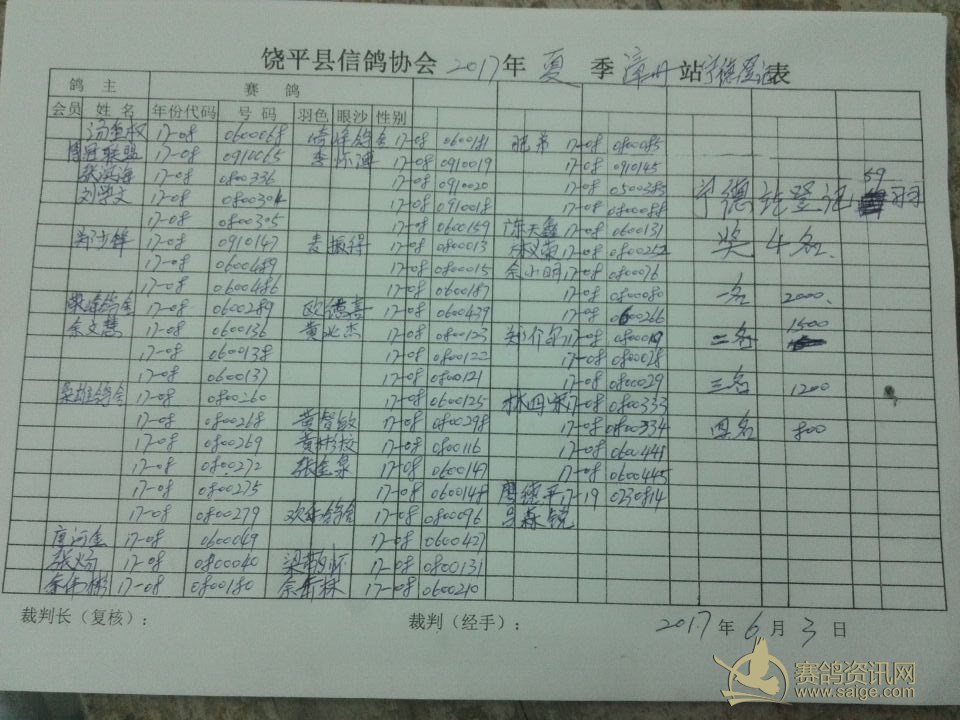 饶平县信鸽协会 2017 年 夏 季 漳州 站宁德登记表
鸽 主 赛 鸽
会员 姓 名 年份代码 号 码 羽色 眼沙 性别
17-08 0600068 17-08 0600181 17-08 0800085
博冠联盟 17-08 0910065 李怀海 17-08 0910019 17-08 0910145
张滨海 17-08 0800336 17-08 0910020 17-08 0500285
刘学文 17-08 0800304 17-08 0910018 17-08 0800088 宁德站登记 59 羽
17-08 0800305 17-08 0600159 陈天鑫 17-08 0600131
17-08 0910147 麦振得 17-08 0800013 17-08 0800252 奖 4名
17-08 0600489 17-08 0800015 余小明 17-08 0800076
17-08 0600486 17-08 0600187 17-08 0800080 一名 2000
17-08 0600289 欧德喜 17-08 0600439 17-08 0600266
余文慧 17-08 0600136 黄火杰 17-08 0800123 17-08 二名 1500
17-08 0600138 17-08 0800122 17-08 0800028
17-08 0600137 17-08 0800121 17-08 0800029 三名 1200
17-08 0800260 17-08 0600125 17-08 0800333
17-08 0800268 黄智敏 17-08 0800298 17-08 0800334 四名 800
17-08 0800269 17-08 0800116 17-08 0600441
17-08 0800272 张金泉 17-08 0600147 17-08 0600445
17-08 0800275 17-08 0600148 17-19 0230814
17-08 0800279 17-08 0800096
17-08 0600049 17-08 0600427
17-08 0800040 17-08 0800131
17-08 0800180 17-08 0600210
裁判长（复核）： 裁判（经手）： 2017 年 6 月 3 日
赛鸽资讯网
www.saige.com